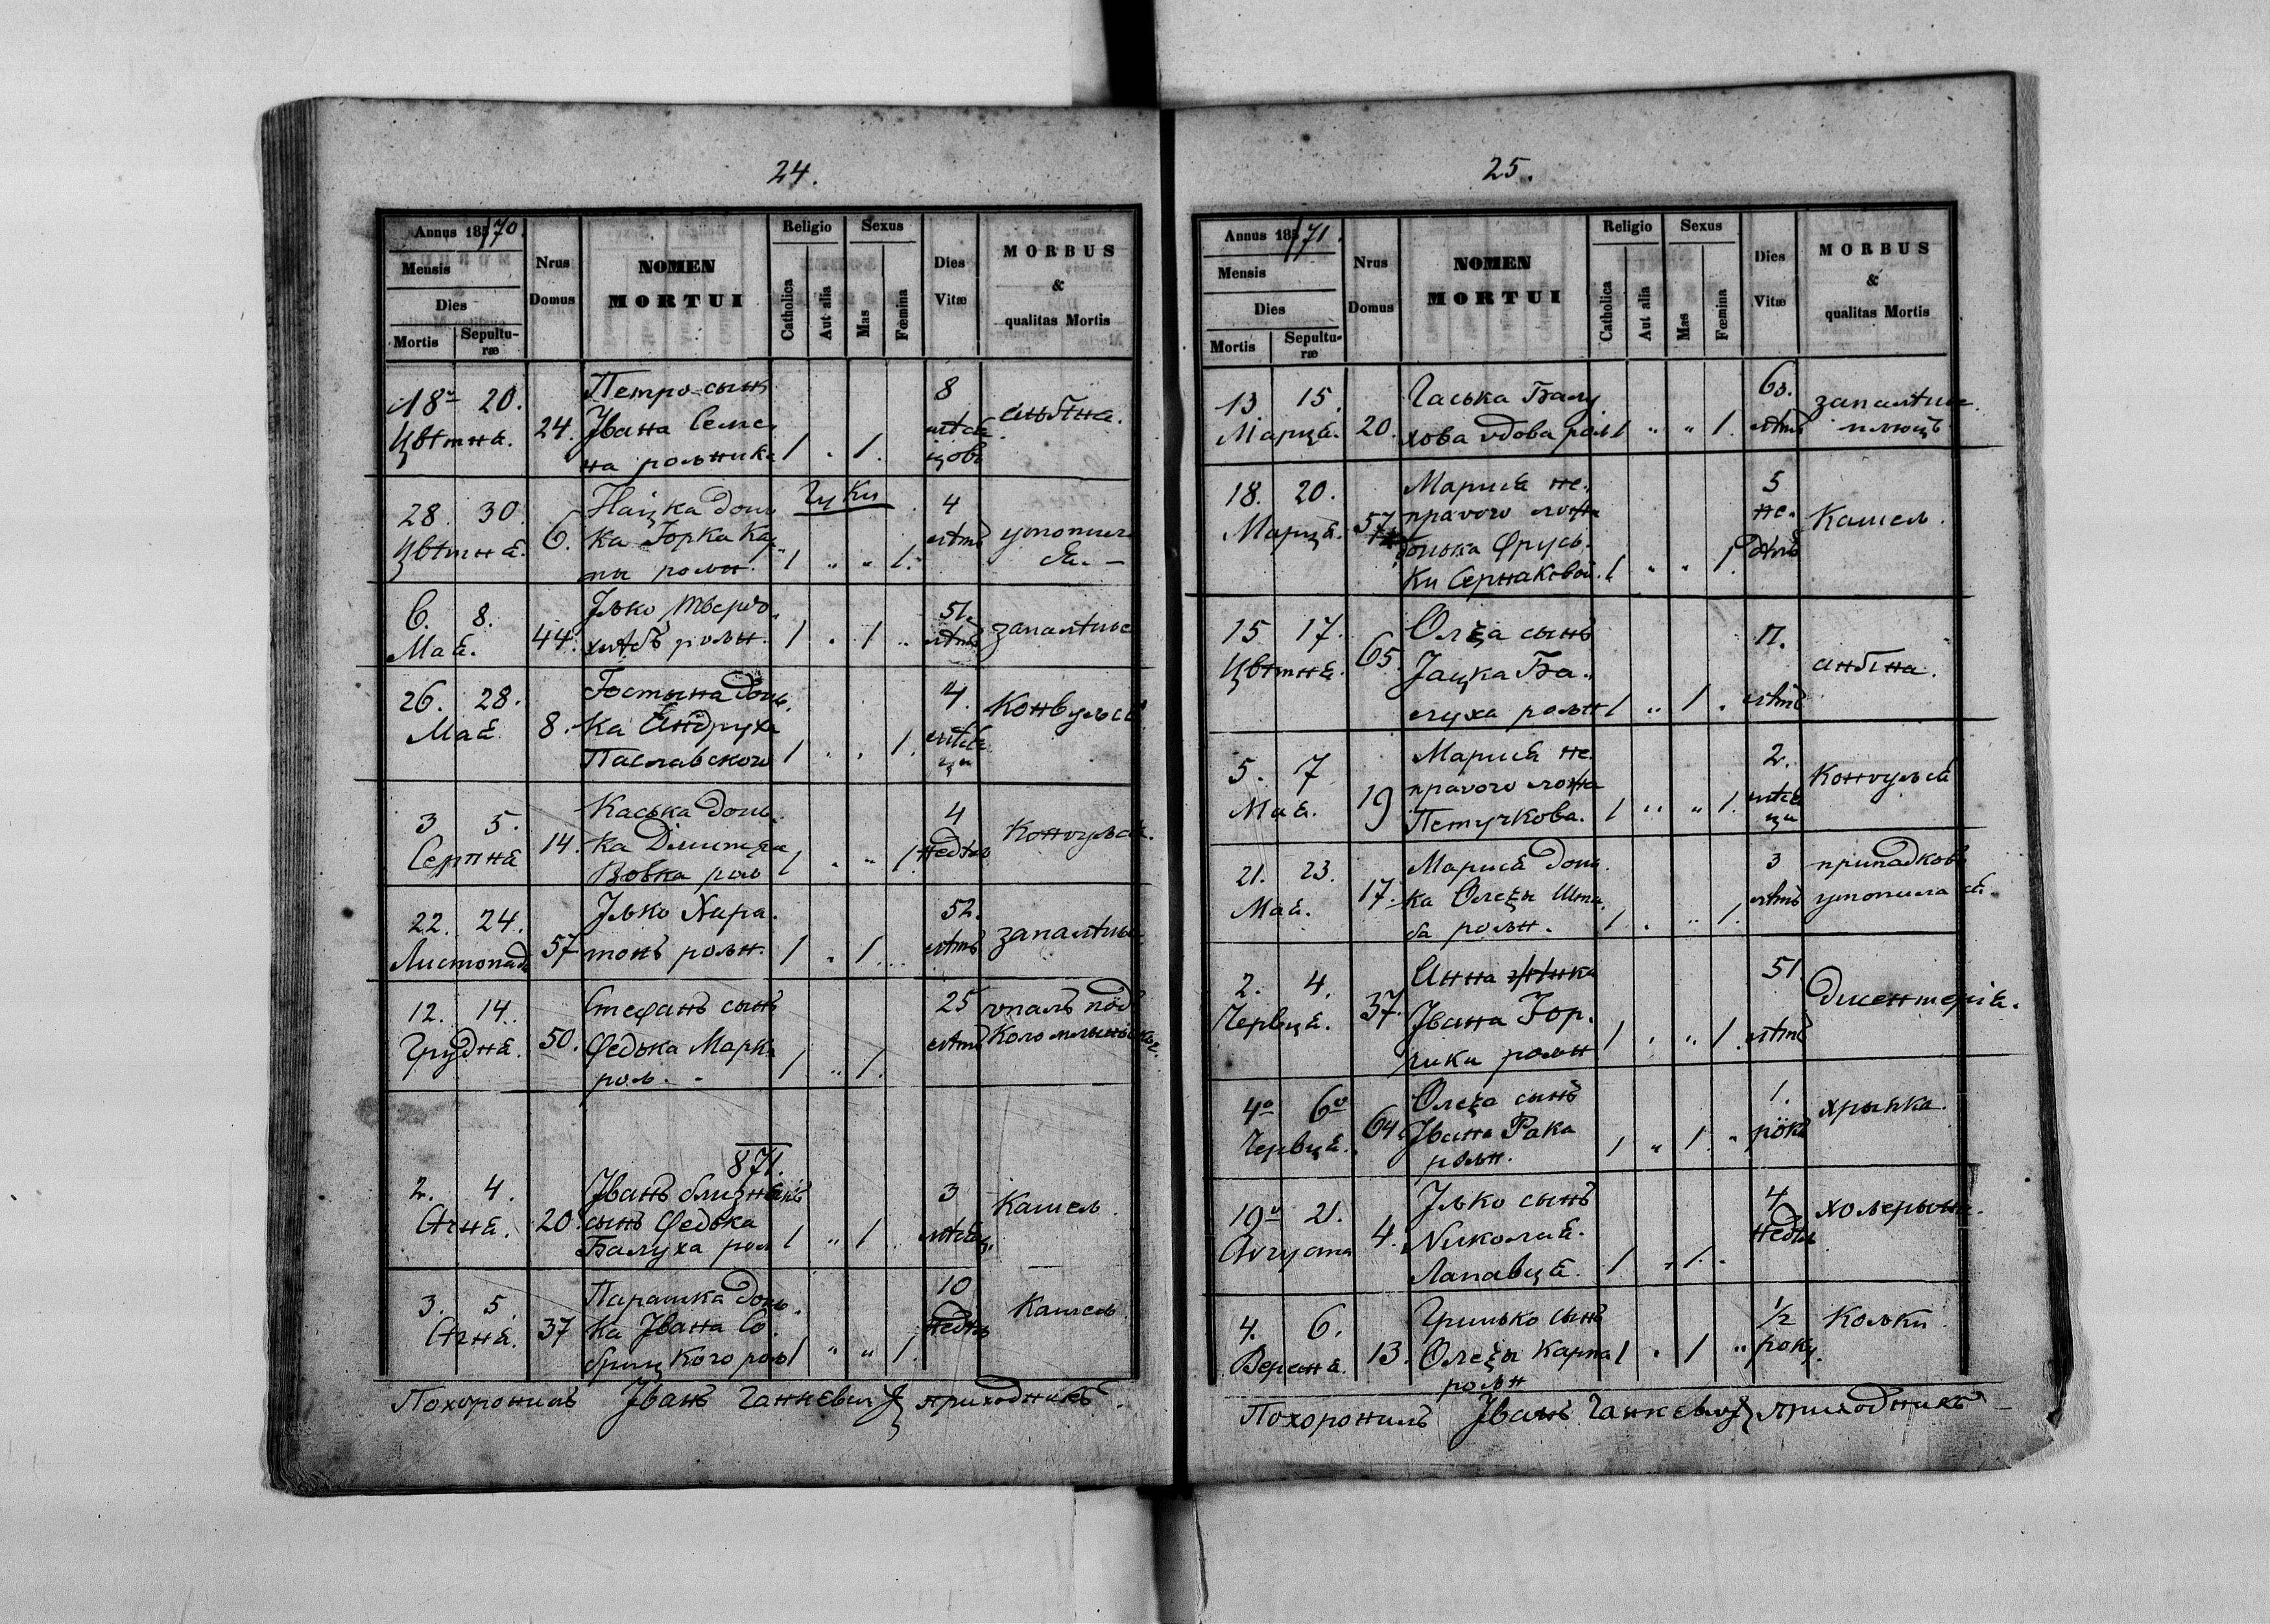 24.
Annus 18570.
Mensis
Dies
Mortis
Sepultu-
ræ
Nrus
Domus
NOMEN
MORTUI
Religio
Catholica
Aut alia
Sexus
Mas
Fœmina
Dies
Vitæ
MORBUS
&
qualitas Mortis
18 20.
Цвѣтня.
24.
Петро сынъ
Івана Семе
на рольника
1 . 1.
8
мѣся
цовъ
28. 30.
Цвѣтня.
6.
донь
ка Горка Ка
пы рольн.
1 " " 1.
4
лѣтъ
утопила
ся. —
6. 8.
Мая.
44.
Ілько Тверdo
хлѣбъ рольн.
1 . 1 "
51.
лѣтъ
запалѣніе
26. 28.
Мая
8.
донь
ка Андруха
Паславского
1 . . 1.
4.
мѣся
ци
Конвульсія
3 5.
Серпня
14.
Каська донь
ка Дмитра
Вовка роль
1 . " 1.
4
недѣль
Конвульсія.
22. 24.
Листопада
57
Ілько Хара
тонъ рольн.
1 . 1 ..
52.
лѣтъ
запалѣніе.
12. 14.
Грудня.
50.
Стефанъ сынъ
Федька Марка
роль. -
1 " 1.
25
лѣтъ
упалъ подъ
871.
2. 4.
Січня.
20.
Іванъ близнякъ
сынъ Федька
Балуха рол
1 " 1 .
3
мѣсяц.
Кашель.
3. 5.
Січня.
37
Парашка донь
ка Івана Со
брицкого роль
1 " " 1.
10
недѣль
Кашель.
Похоронилъ Іванъ Ганкевичъ приходникъ.
25.
Annus 18571.
Mensis
Dies
Mortis
Sepultu-
ræ
Nrus
Domus
NOMEN
MORTUI
Religio
Catholica
Aut alia
Sexus
Mas
Fœmina
Dies
Vitæ
MORBUS
&
qualitas Mortis
13. 15.
Марця.
20.
Гаська Балу
хова вдова рол
1 " " 1.
60.
лѣтъ
запалѣніе.
плюць
18. 20.
Марця.
57
Марися не
правого ложа
донька Фрусь
ки Сернаковой.
1 " " 1.
5
не
дѣль
Кашель.
15 17.
Цвѣтня.
65.
Олекса сынъ
Яцка Ба
луха рольн
1 " 1 .
11.
лѣтъ
ангіна.
5. 7
Мая.
19
Марися не
правого ложа
Петручкова.
1 " " 1.
2.
мѣся
ци
Конвульсія
21. 23.
Мая.
17.
Марися донь
ка Олексы Шта
ба рольн.
1 . " 1.
3
лѣтъ
припадковъ
утопила ся.
2. 4.
Червця.
37.
Анна жінка
Івана Гор
чики рольн
1 . " 1.
51
лѣтъ
дисентерія.
4º 6º
Червця.
64.
Олекса сынъ
Івана Рака
рольн.
1 " 1 "
1.
рôкъ
хрыпка.
19 21.
Августа
4.
Ілько сынъ
Николая
Лапавця.
1 . 1 .
4
недѣль
холерына.
4. 6.
Вересня.
13.
Гринько сынъ
Олексы Карпа
рольн
1 . 1 "
1/2
року.
Кольки.
Похоронилъ Іванъ Ганкевичъ приходникъ